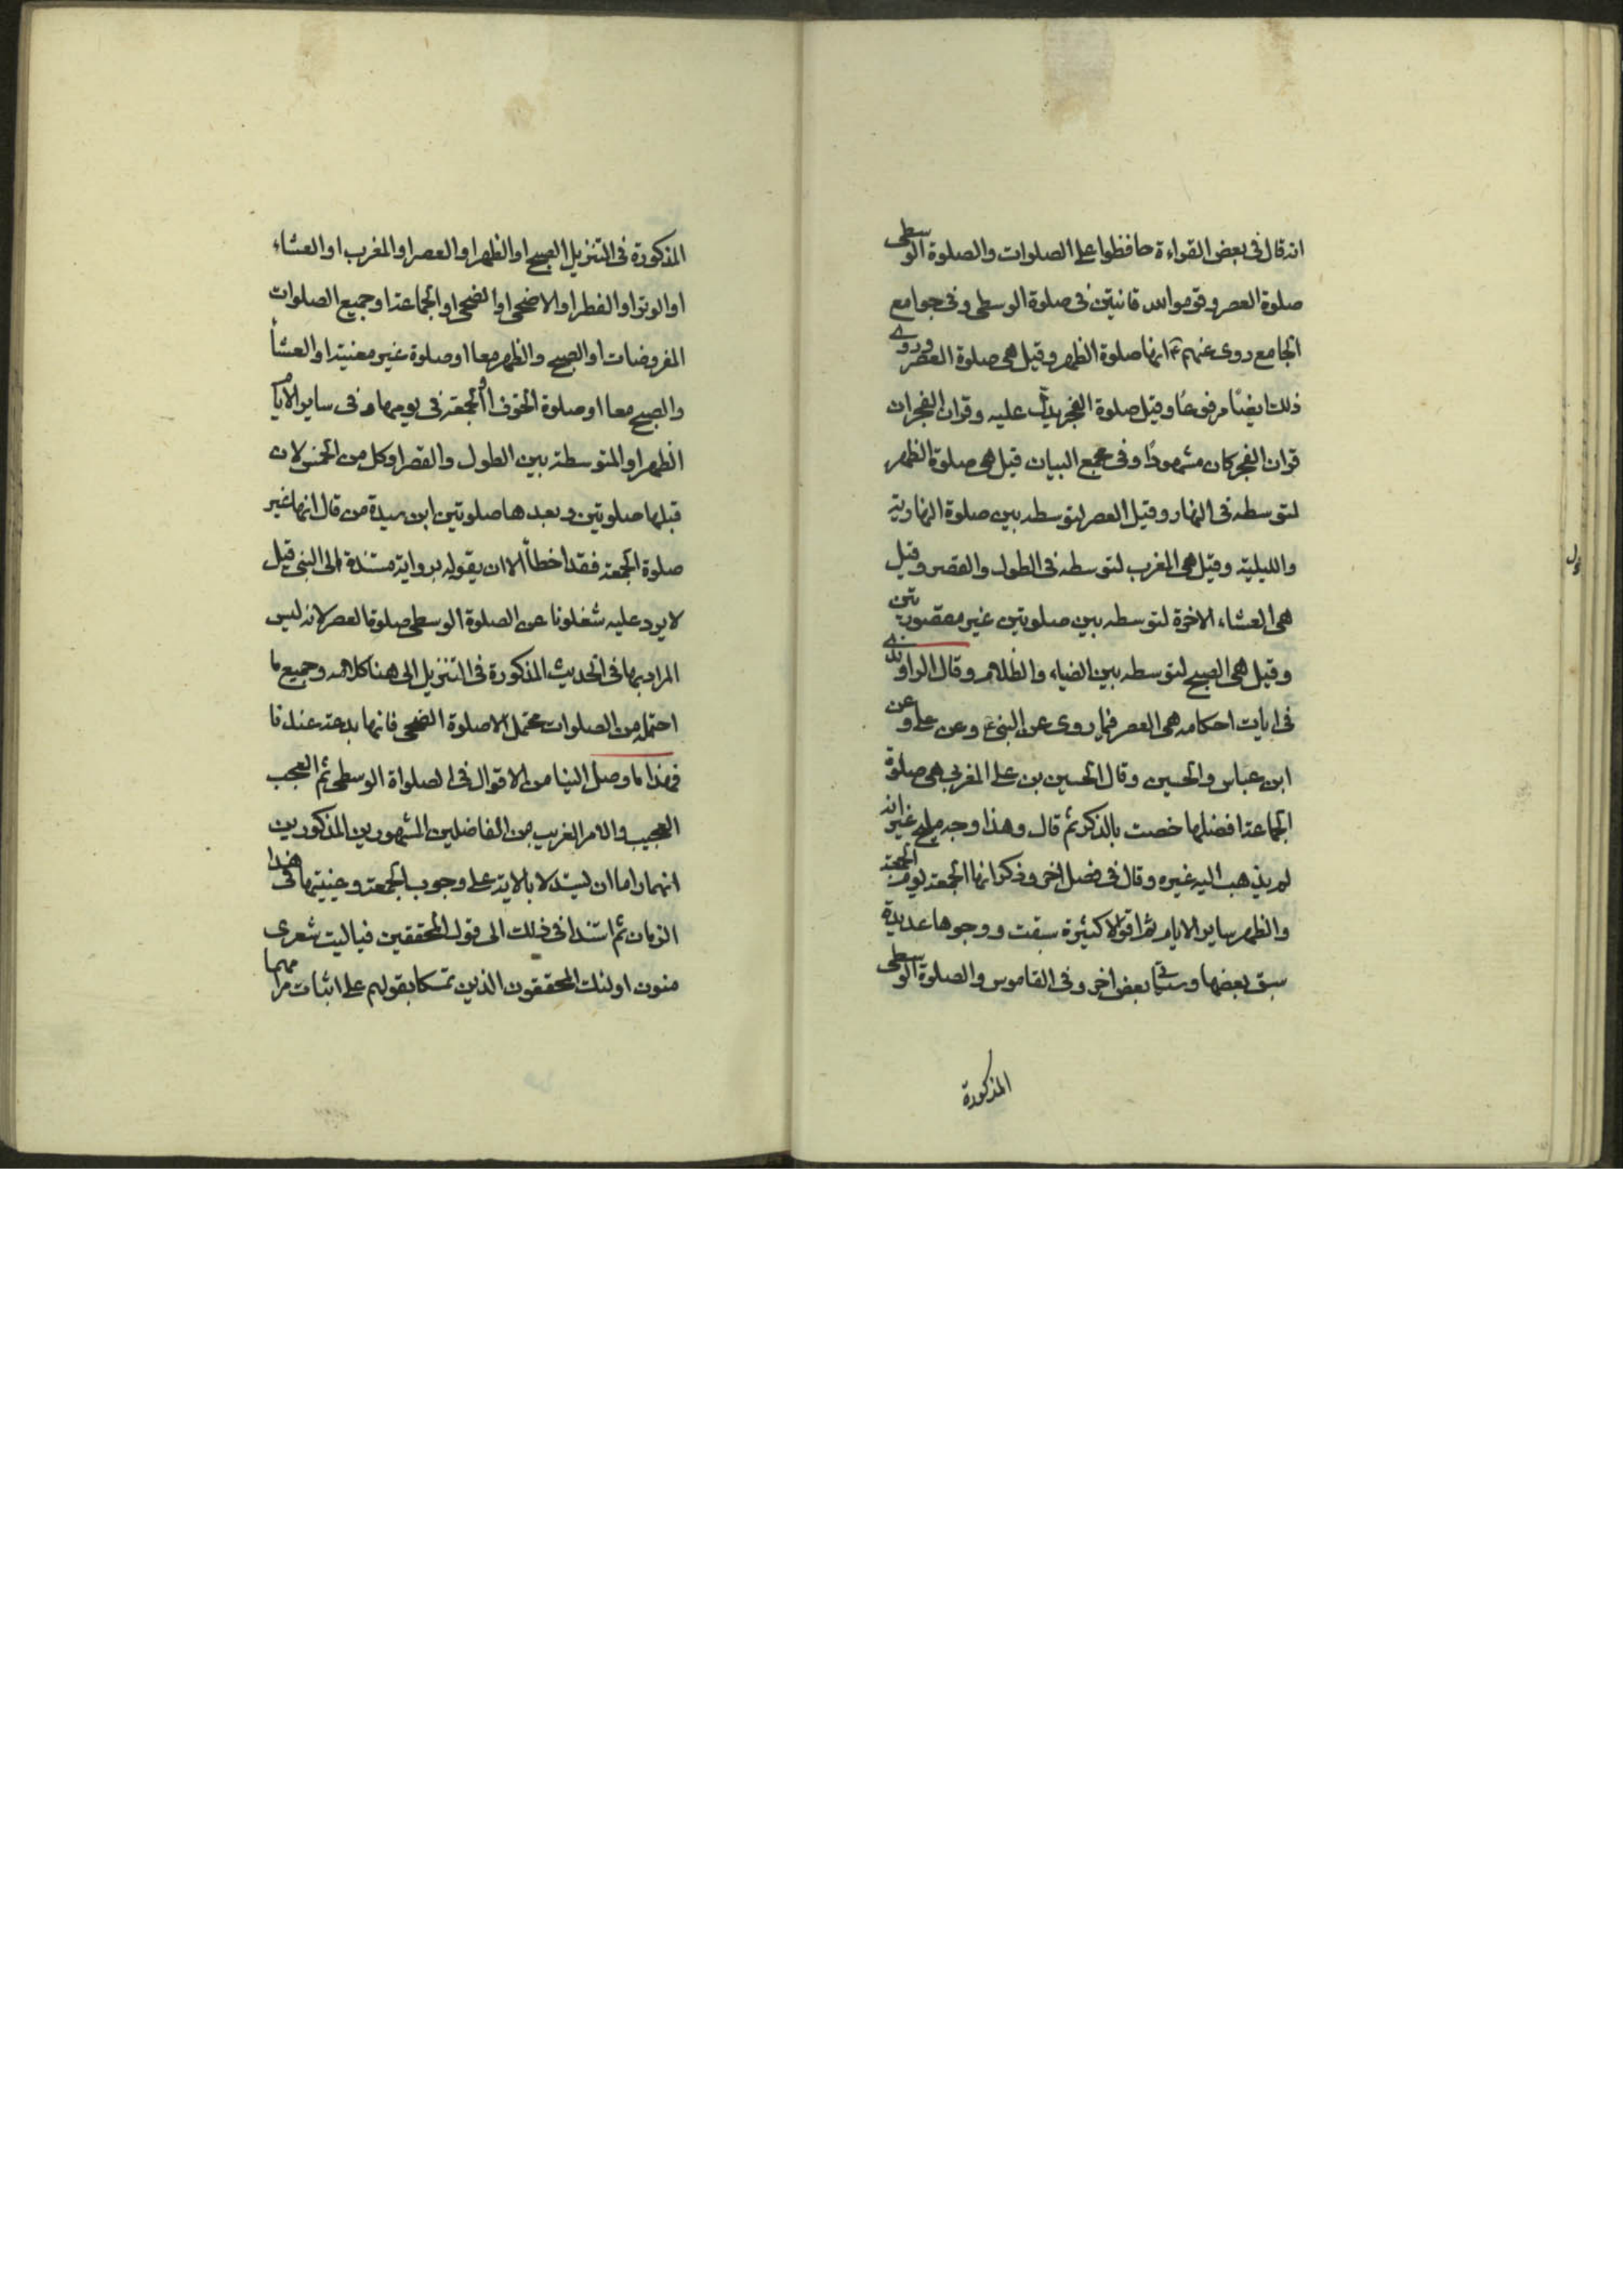 انه قال فی بعض القراءة حافظوا علی الصلوات والصلوة الوسطی
صلوة العصر وقوموا لله قانتین فی صلوة الوسطی وفی جوامع
الجامع روی عنهم ع انها صلوة الظهر وقیل هی صلوة العصر وروی
ذلك ایضًا مرفوعًا وقیل صلوة الفجر یدل علیه وقران الفجر ان
قران الفجر كان مشهودًا وفی مجمع البیان قیل هی صلوة الظهر
لتوسطه فی النهار وقیل العصر لتوسطه بین صلوة النهاریة
واللیلیة وقیل هی المغرب لتوسطه فی الطول والقصر وقیل
هی العشاء الاخرة لتوسطه بین صلوتین غیر مقصورتین
وقیل هی الصبح لتوسطه بین الضیاء والظلام وقال الراوندی
فی ایات احكامه هی العصر فیما روی عن النبی ع وعن علی وعن
ابن عباس والحسین وقال الحسین بن علی المغربی هی صلوة
الجماعة افضلها خصت بالذكر ثم قال وهذا وجه ملیح غیر انه
لم یذهب الیه غیره وقال فی فصل اخر وذكر انها الجمعة یوم الجمعة
والظهر سایر الایام ثم اقولا كثیرة سبقت ووجوها عدیدة
سبق بعضها وسیاتی بعض اخر وفی القاموس والصلوة الوسطی
المذكورة
المذكورة فی التنزیل الصبح او الظهر او العصر او المغرب او العشاء
او الوتر او الفطر او الاضحی او الضحی او الجماعة او جمیع الصلوات
المفروضات او الصبح والظهر معا او صلوة غیر معنیة او العشأ
والصبح معا او صلوة الخوف او الجمعة فی یومها وفی سایر الایام
الظهر او المتوسطة بین الطول والقصر او كل من الخمس لان
قبلها صلوتین وبعدها صلوتین ابن سیدة من قال انها غیر
صلوة الجمعة فقد اخطأ الا ان یقوله بروایة مسندة الی النبی قیل
لا یرد علیه شغلونا عن الصلوة الوسطی صلوة العصر لانه لیس
المراد بها فی الحدیث المذكورة فی التنزیل الی هنا كلامه وجمیع ما
احتمله من الصلوات محتمل الا صلوة الضحی فانها بدعة عندنا
فهذا ما وصل الینا من الاقوال فی الصلواة الوسطی ثم العجب
العجیب والامر الغریب من الفاضلین المشهورین المذكورین
انهما راما ان لیستدلا بالایة علی وجوب الجمعة وعینیتها فی هذا
الزمان ثم استندا فی ذلك الی قول المحققین فیا لیت شعری
منون اولئك المحققون الذین تمسكا بقولهم علی اثبات مرامهما